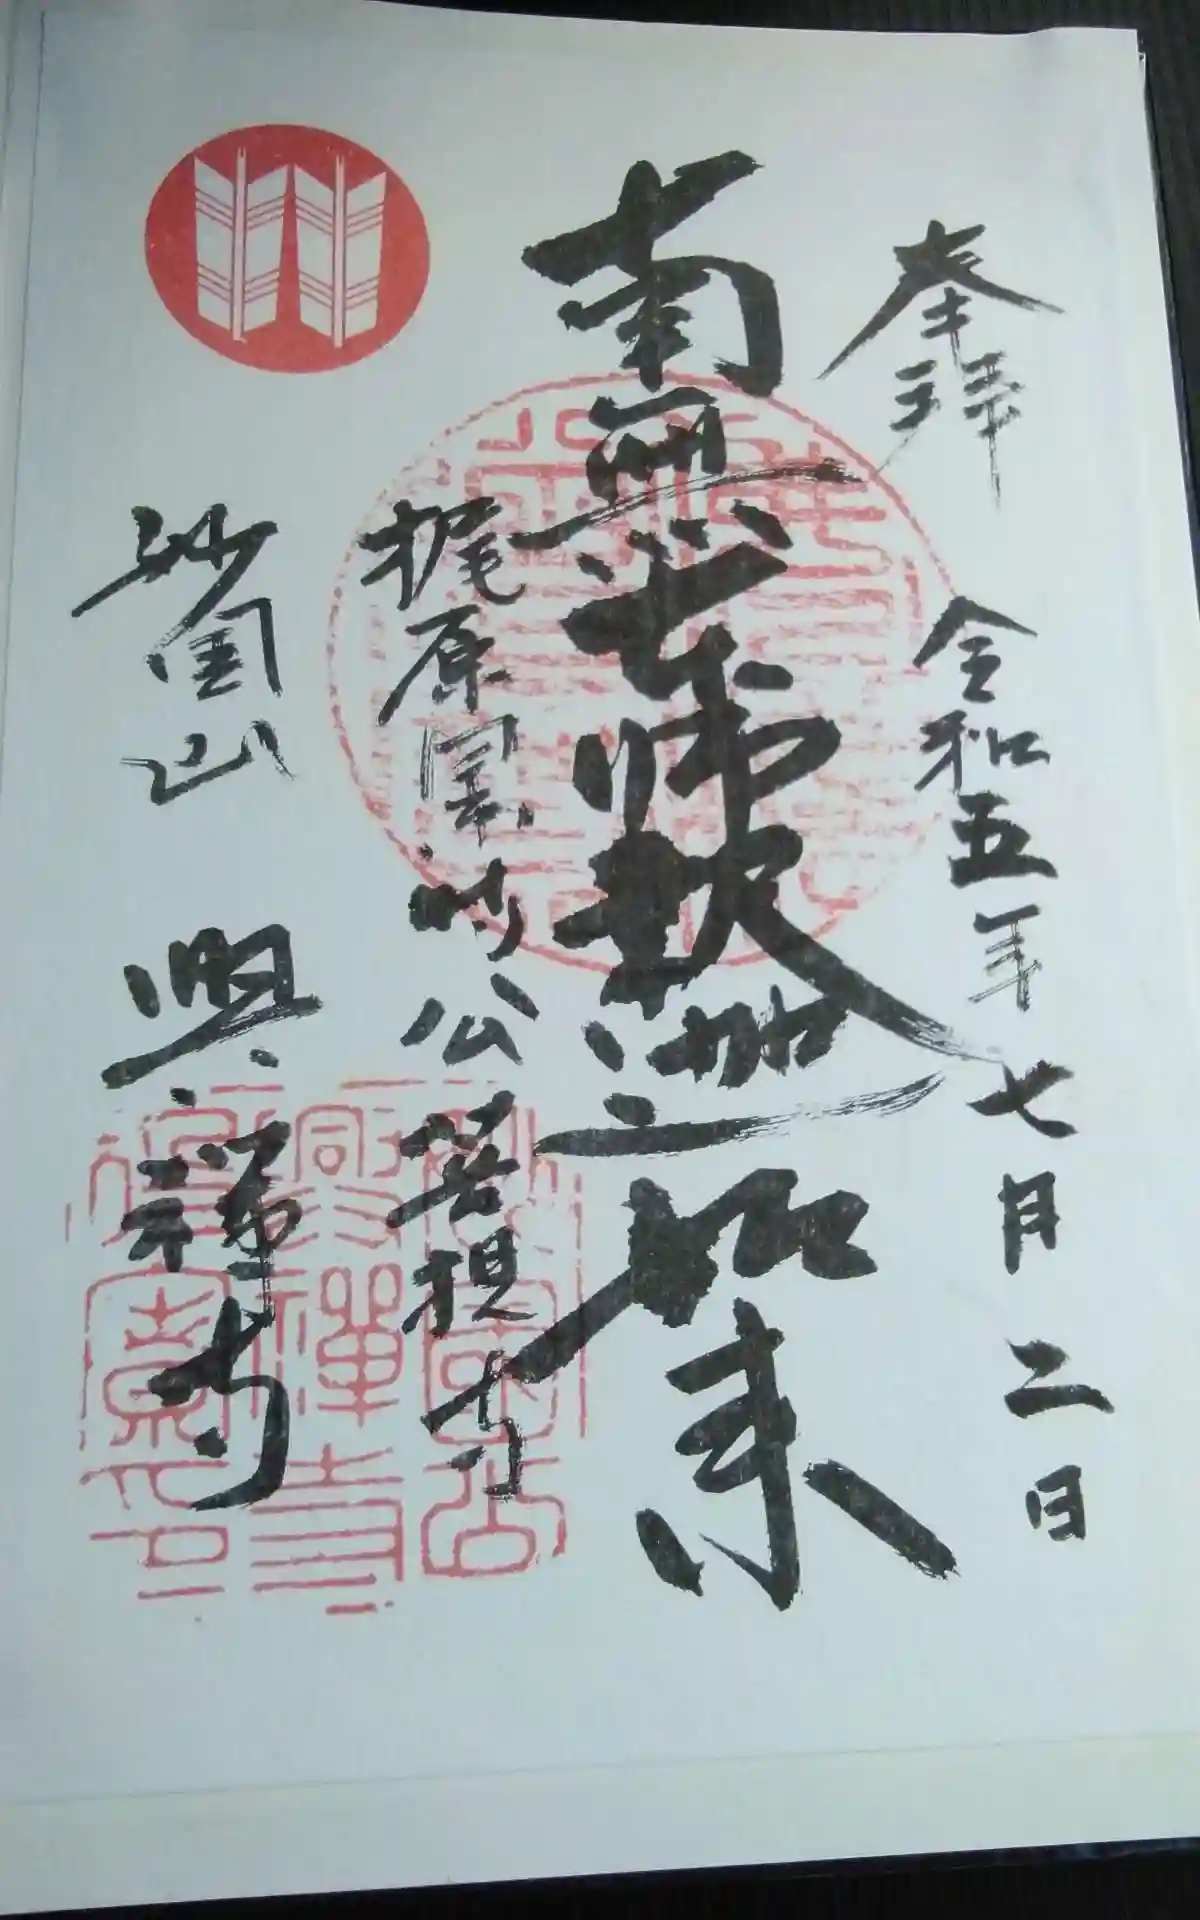 奉拝
令和五年七月二日
南無本師釈迦如来
梶原景時公菩提寺
妙国山 興禅寺